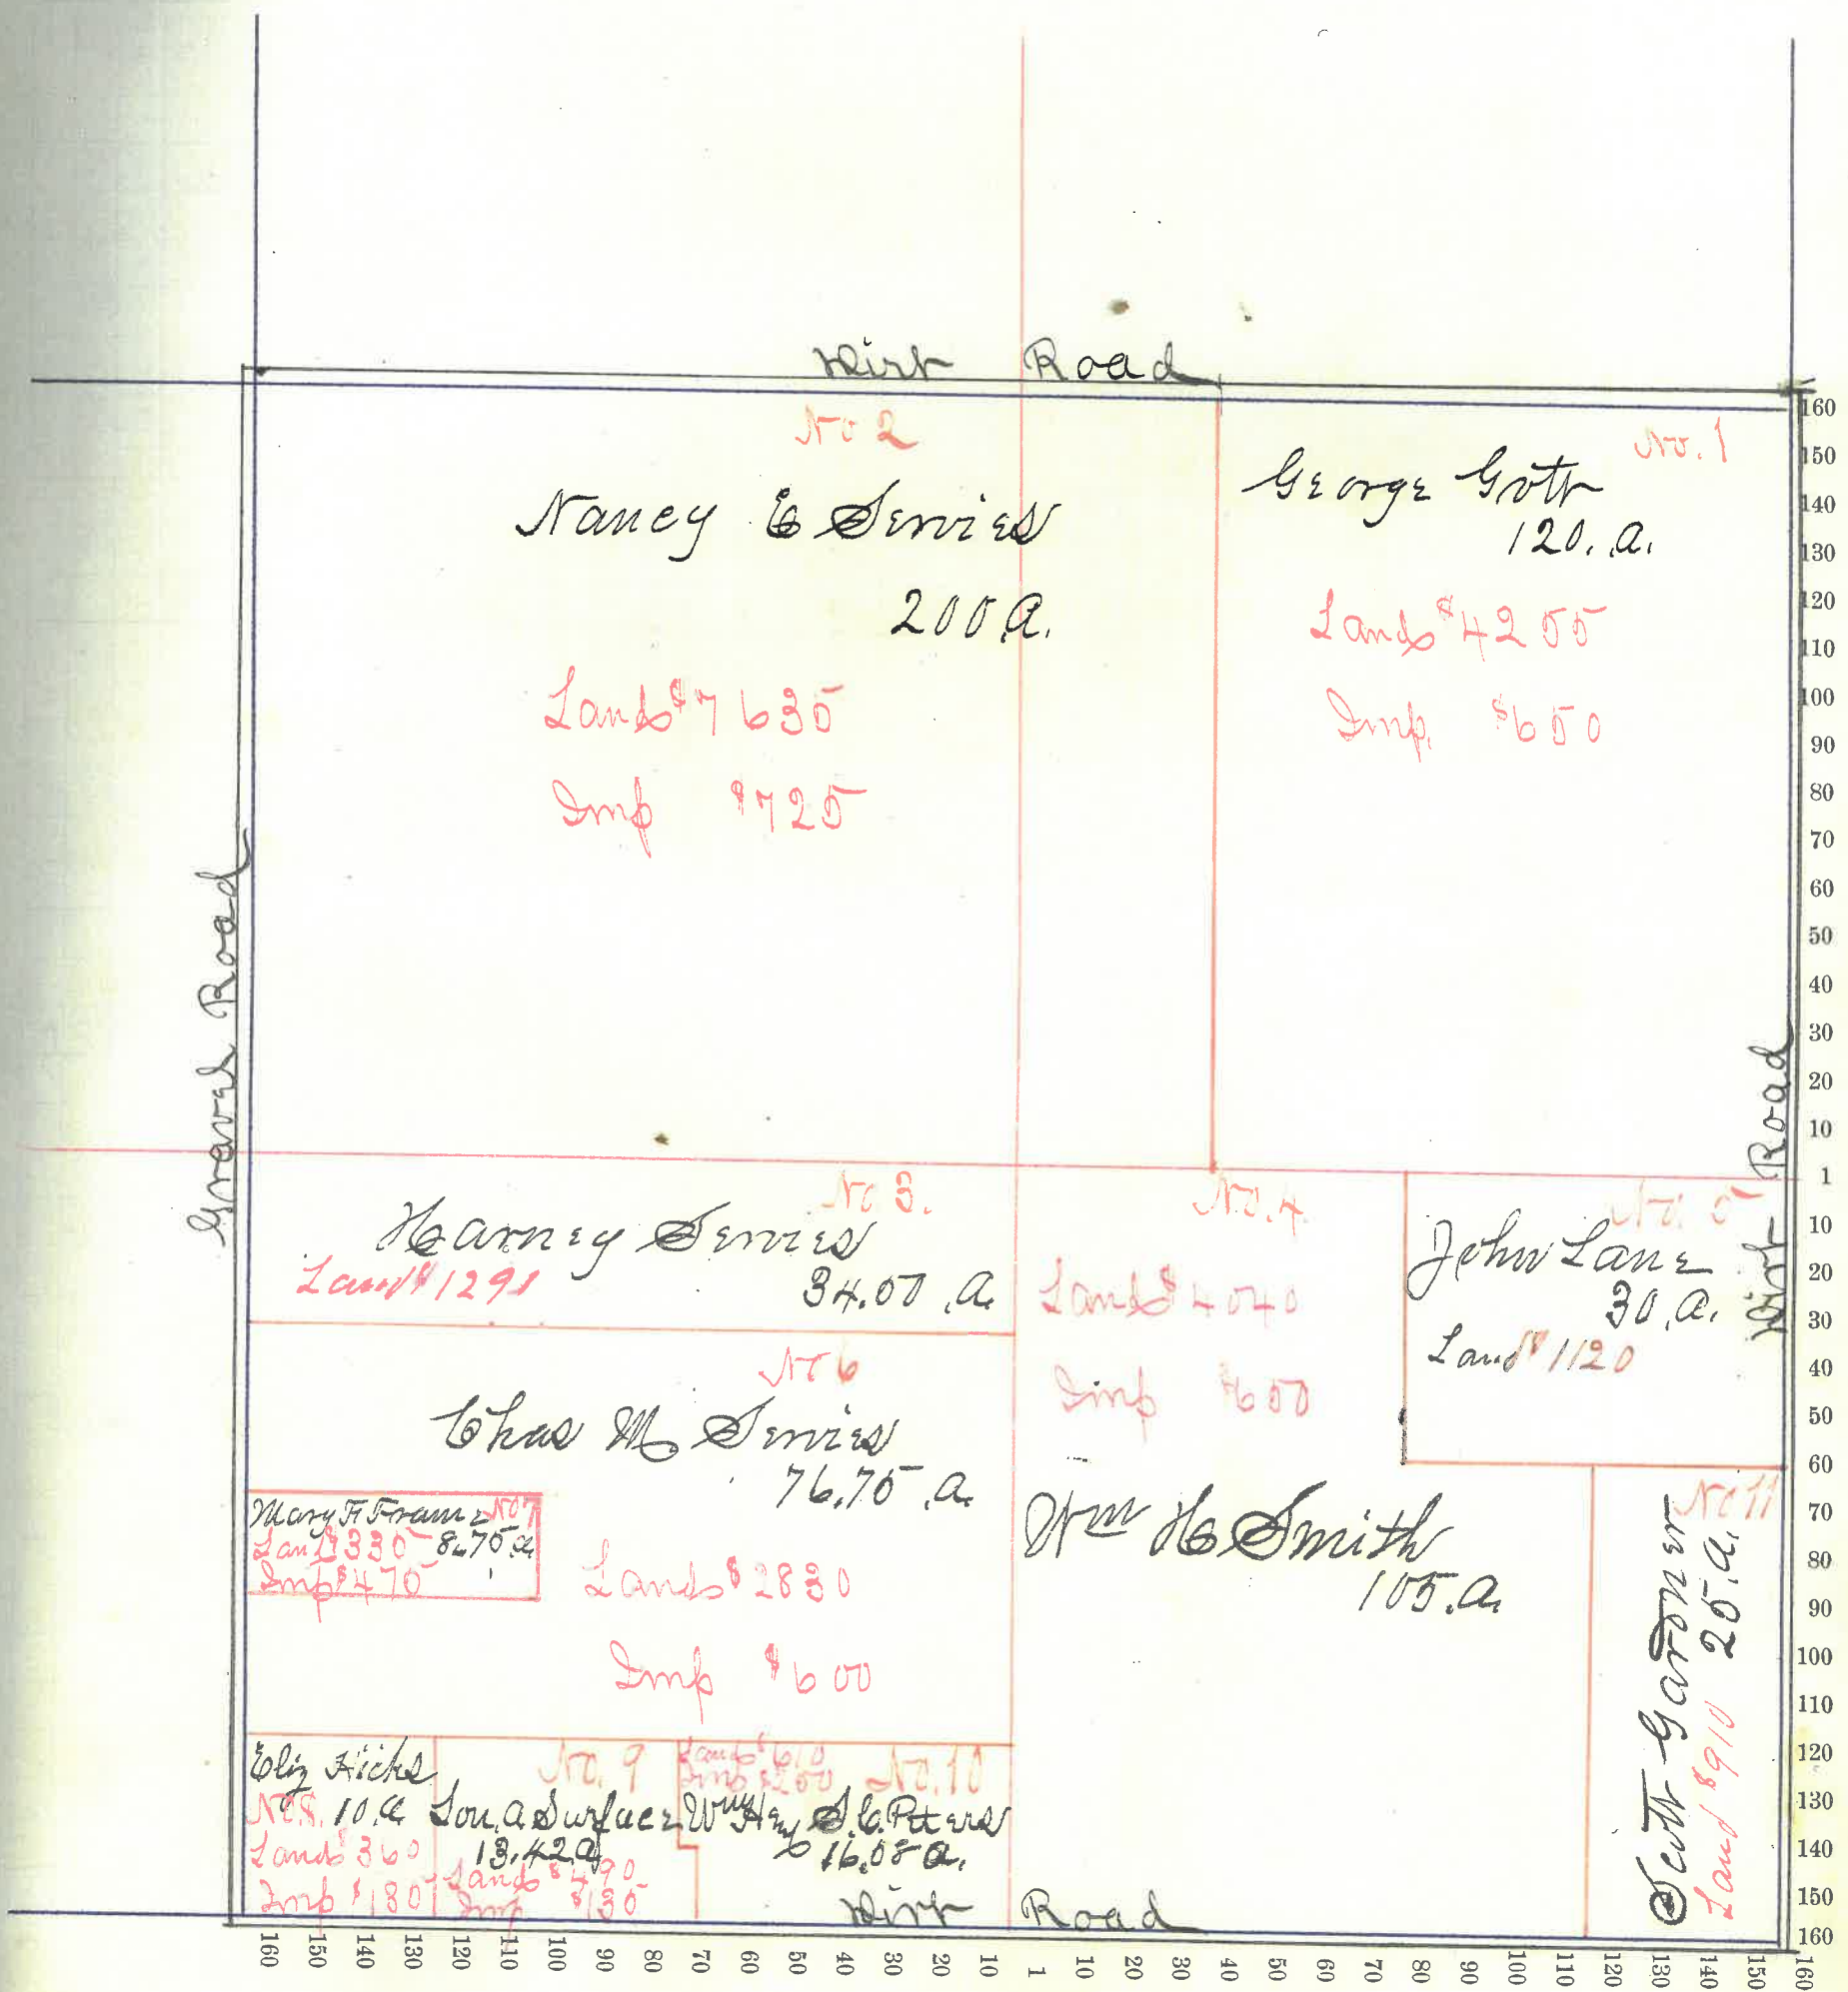 Dirt Road
No 2
Nancy E Servies
200.a.
Lands $7635
Imp $725
No. 1
George Gott
120.a.
Lands $4255
Imp. $650
Gravel Road
Dirt Road
No 3.
Harney Servies
Land $1291
34.00.a.
No. 4
Lands $4040
Imp $650
Wm H Smith
105.a.
No. 5
John Lane
30.a.
Land $1120
No 6
Chas M Servies
76.75.a.
Lands $2830
Imp $600
Mary F Frame No 7
Land $330 8.75 a.
Imp $475
Eliz Hicks
No 8. 10.a
Lands 360
Imp $180
No. 9
Lou. A Surface
13.42 a
Lands $490
Imp $130
Lands $610
Imp $200 No. 10
Wm Hey S.C. Peters
16.08 a.
No 11
Scott Gardner
25.a.
Land $910
Dirt Road
160
150
140
130
120
110
100
90
80
70
60
50
40
30
20
10
1
10
20
30
40
50
60
70
80
90
100
110
120
130
140
150
160
160 150 140 130 120 110 100 90 80 70 60 50 40 30 20 10 1 10 20 30 40 50 60 70 80 90 100 110 120 130 140 150 160